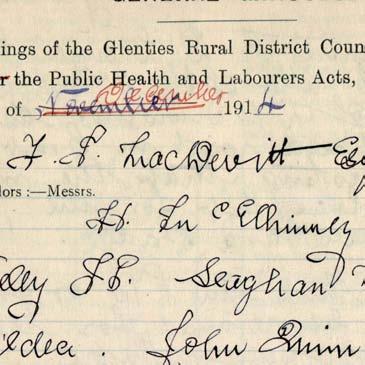 ings of the Glenties Rural District Coun
r the Public Health and Labourers Acts,
of November December 1914
J. P. MacDevitt Esq
lors :—Messrs.
H. McElhinney
J.P. Seaghan
John Quinn